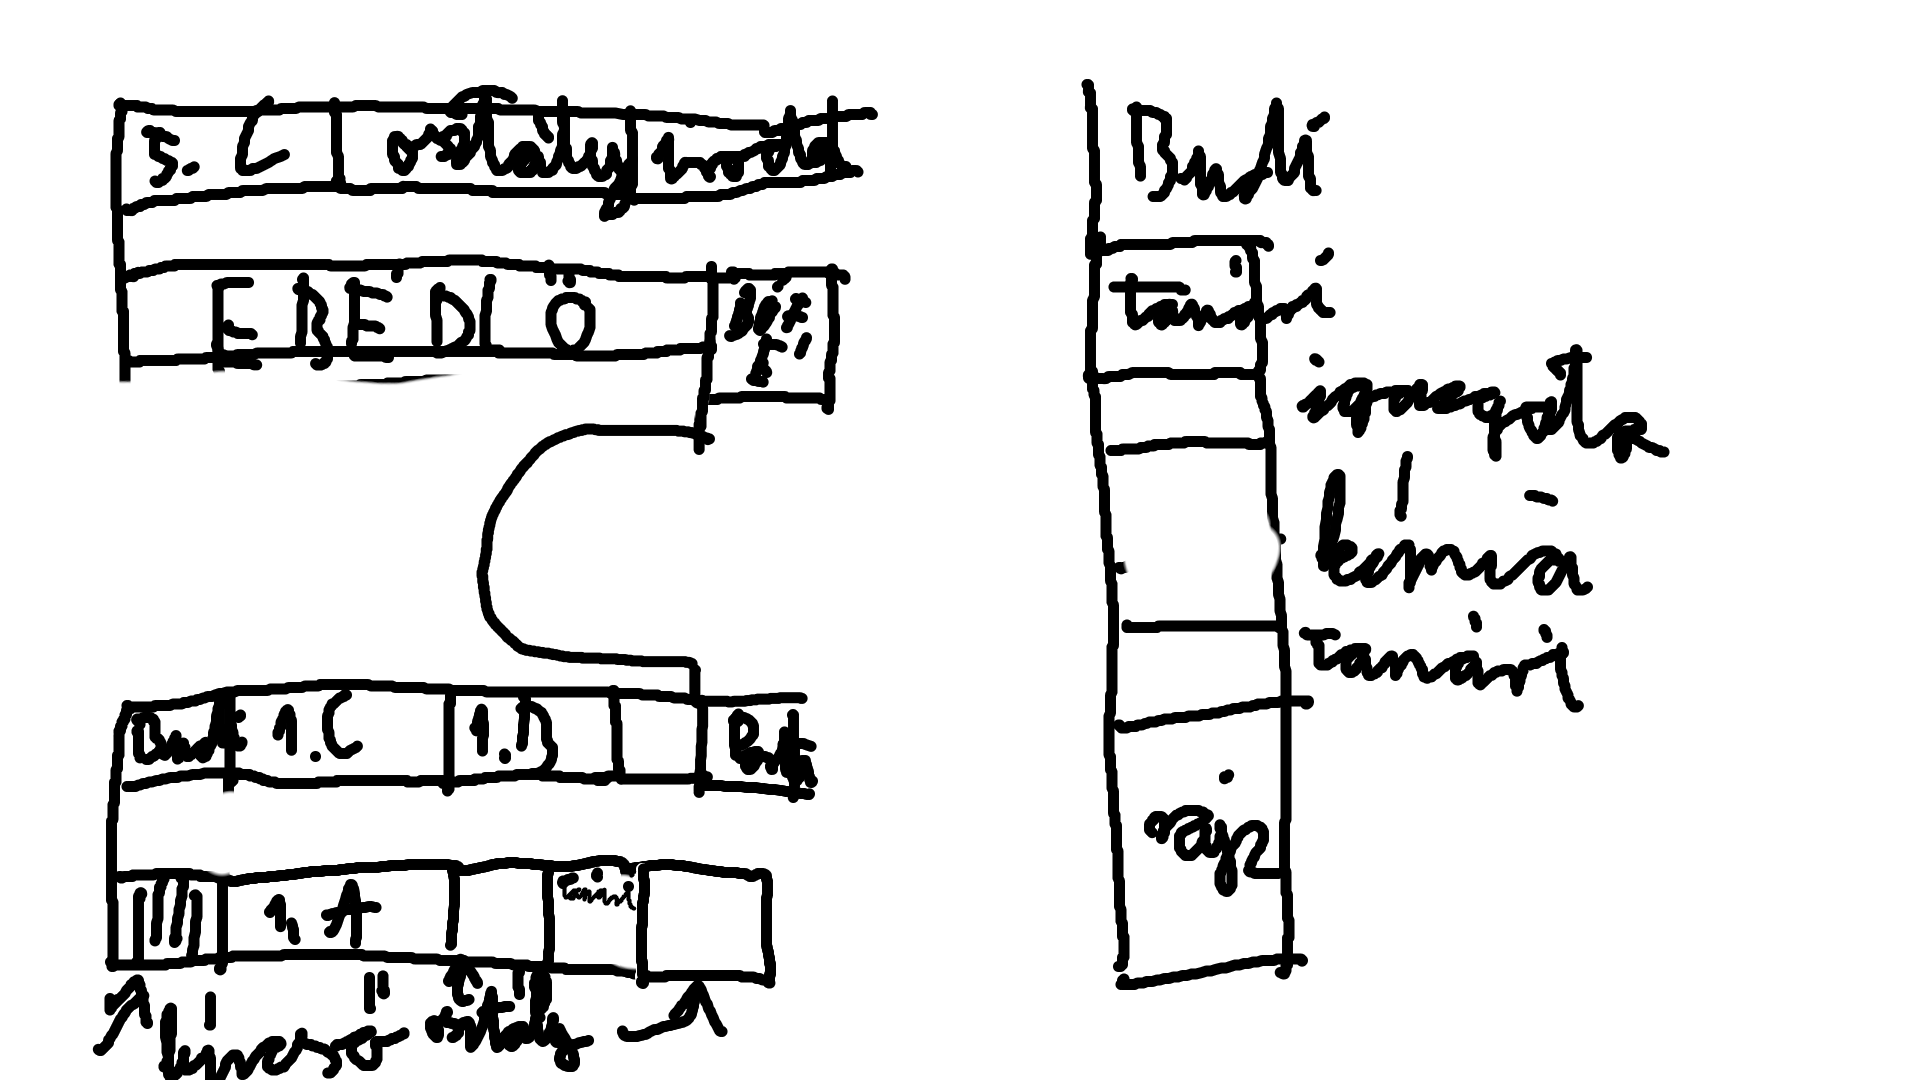 5. C osztály
EBÉDLŐ
BÜFÉ
Budi 1.C 1.B Budi
1. A tanári
kijáró osztály
Budi
tanári
igazgató
kémia
tanári
rajz